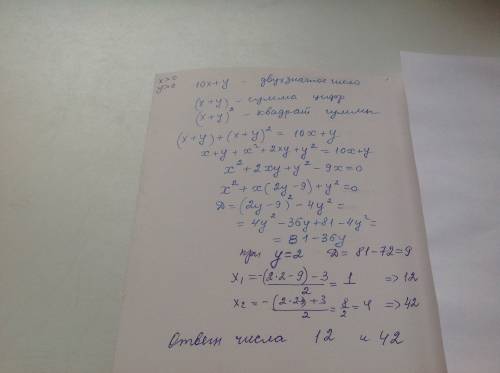 x>0
y>0
10x+y - двухзначное число
(x+y) - сумма цифр
(x+y)² - квадрат суммы
(x+y)+(x+y)² = 10x+y
x+y+x²+2xy+y² = 10x+y
x²+2xy+y²-9x=0
x²+x(2y-9)+y²=0
D=(2y-9)²-4y²=
= 4y²-36y+81-4y²=
= 81-36y
при y=2 D=81-72=9
x₁ = -(2·2-9)-3/2 = 1 => 12
x₂ = -(2·2)+3/2 = 8/2 = 4 => 42
Ответ числа 12 и 42